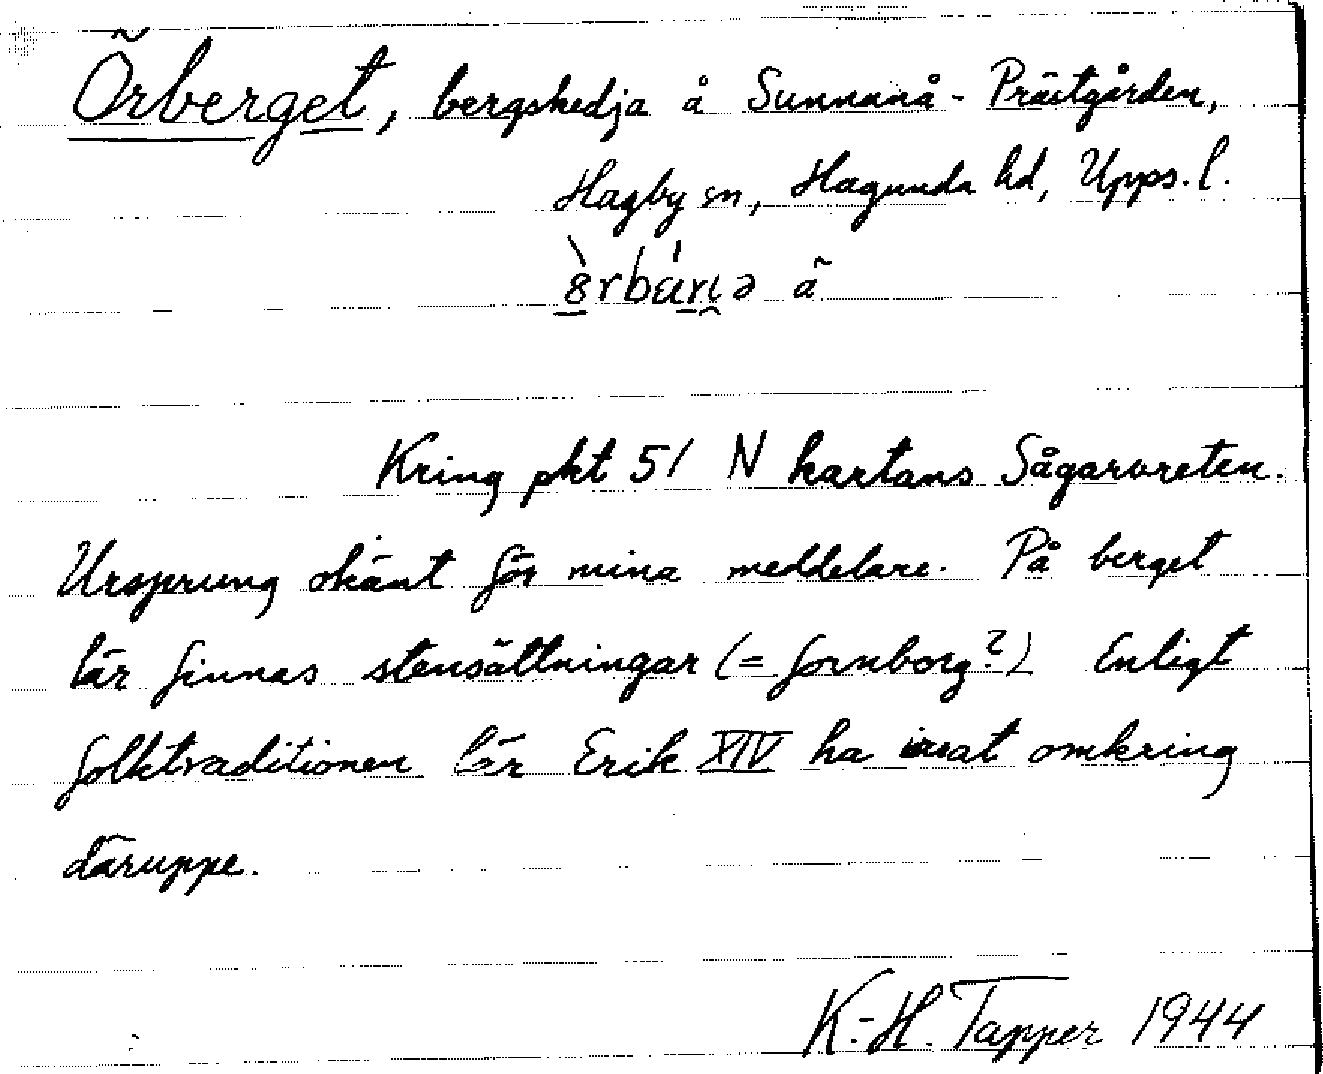 Örberget, bergskedja å Sunnanå - Prästgården,
Hagby sn, Hagunda hd, Upps. l.
å
Kring pkt 51 N kartans Sågarvreten.
Ursprung okänt för mina meddelare. På berget
lär finnas stensättningar (= fornborg?) Enligt
folktraditionen lär Erik XIV ha irrat omkring
däruppe.
K.-H. Tapper 1944